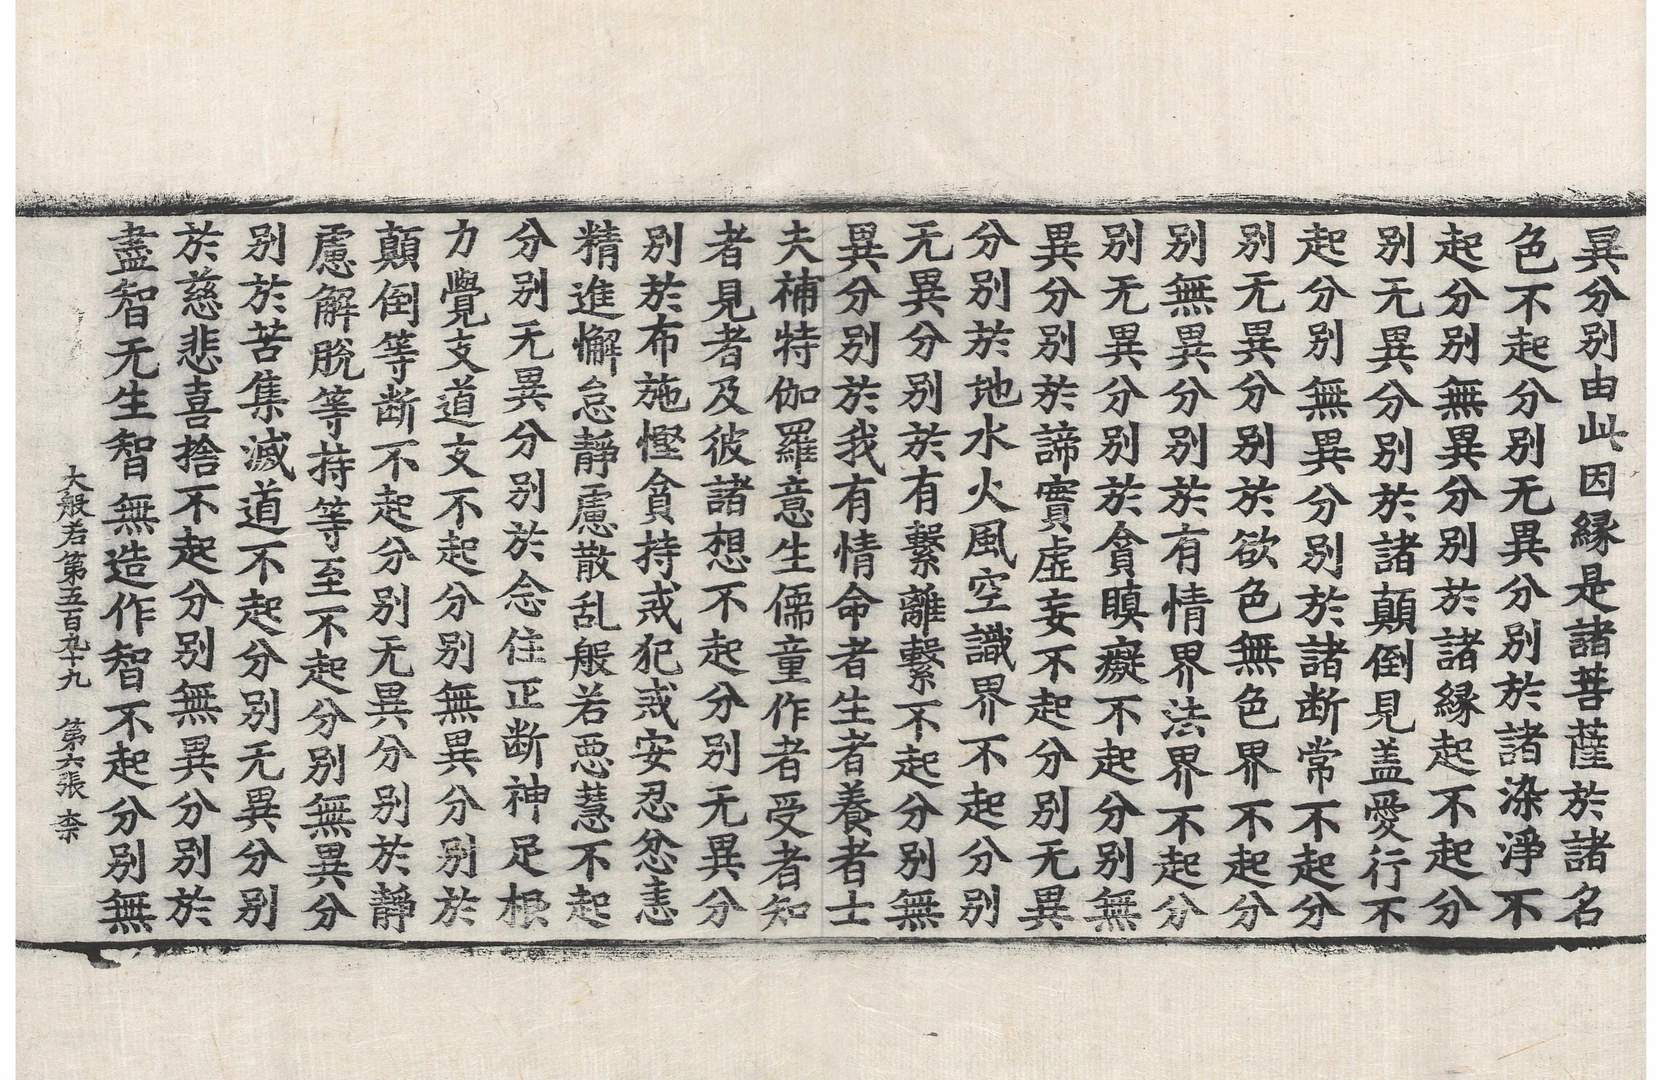 異分別由此因縁是諸菩薩於諸名
色不起分別无異分別於諸染淨不
起分別無異分別於諸縁起不起分
別无異分別於諸顛倒見盖愛行不
起分別無異分別於諸断常不起分
別无異分別於欲色無色界不起分
別無異分別於有情界法界不起分
別无異分別於貪瞋癡不起分別無
異分別於諦實虛妄不起分別无異
分別於地水火風空識界不起分別
无異分別於有繫離繫不起分別無
異分別於我有情命者生者養者士
夫補特伽羅意生儒童作者受者知
者見者及彼諸想不起分別无異分
別於布施慳貪持戒犯戒安忍忿恚
精進懈怠靜慮散乱般若惡慧不起
分別无異分別於念住正断神足根
力覺支道支不起分別無異分別於
顛倒等断不起分別无異分別於靜
慮解脫等持等至不起分別無異分
別於苦集滅道不起分別无異分別
於慈悲喜捨不起分別無異分別於
盡智无生智無造作智不起分別無
大般若第五百九十九　第六張　柰